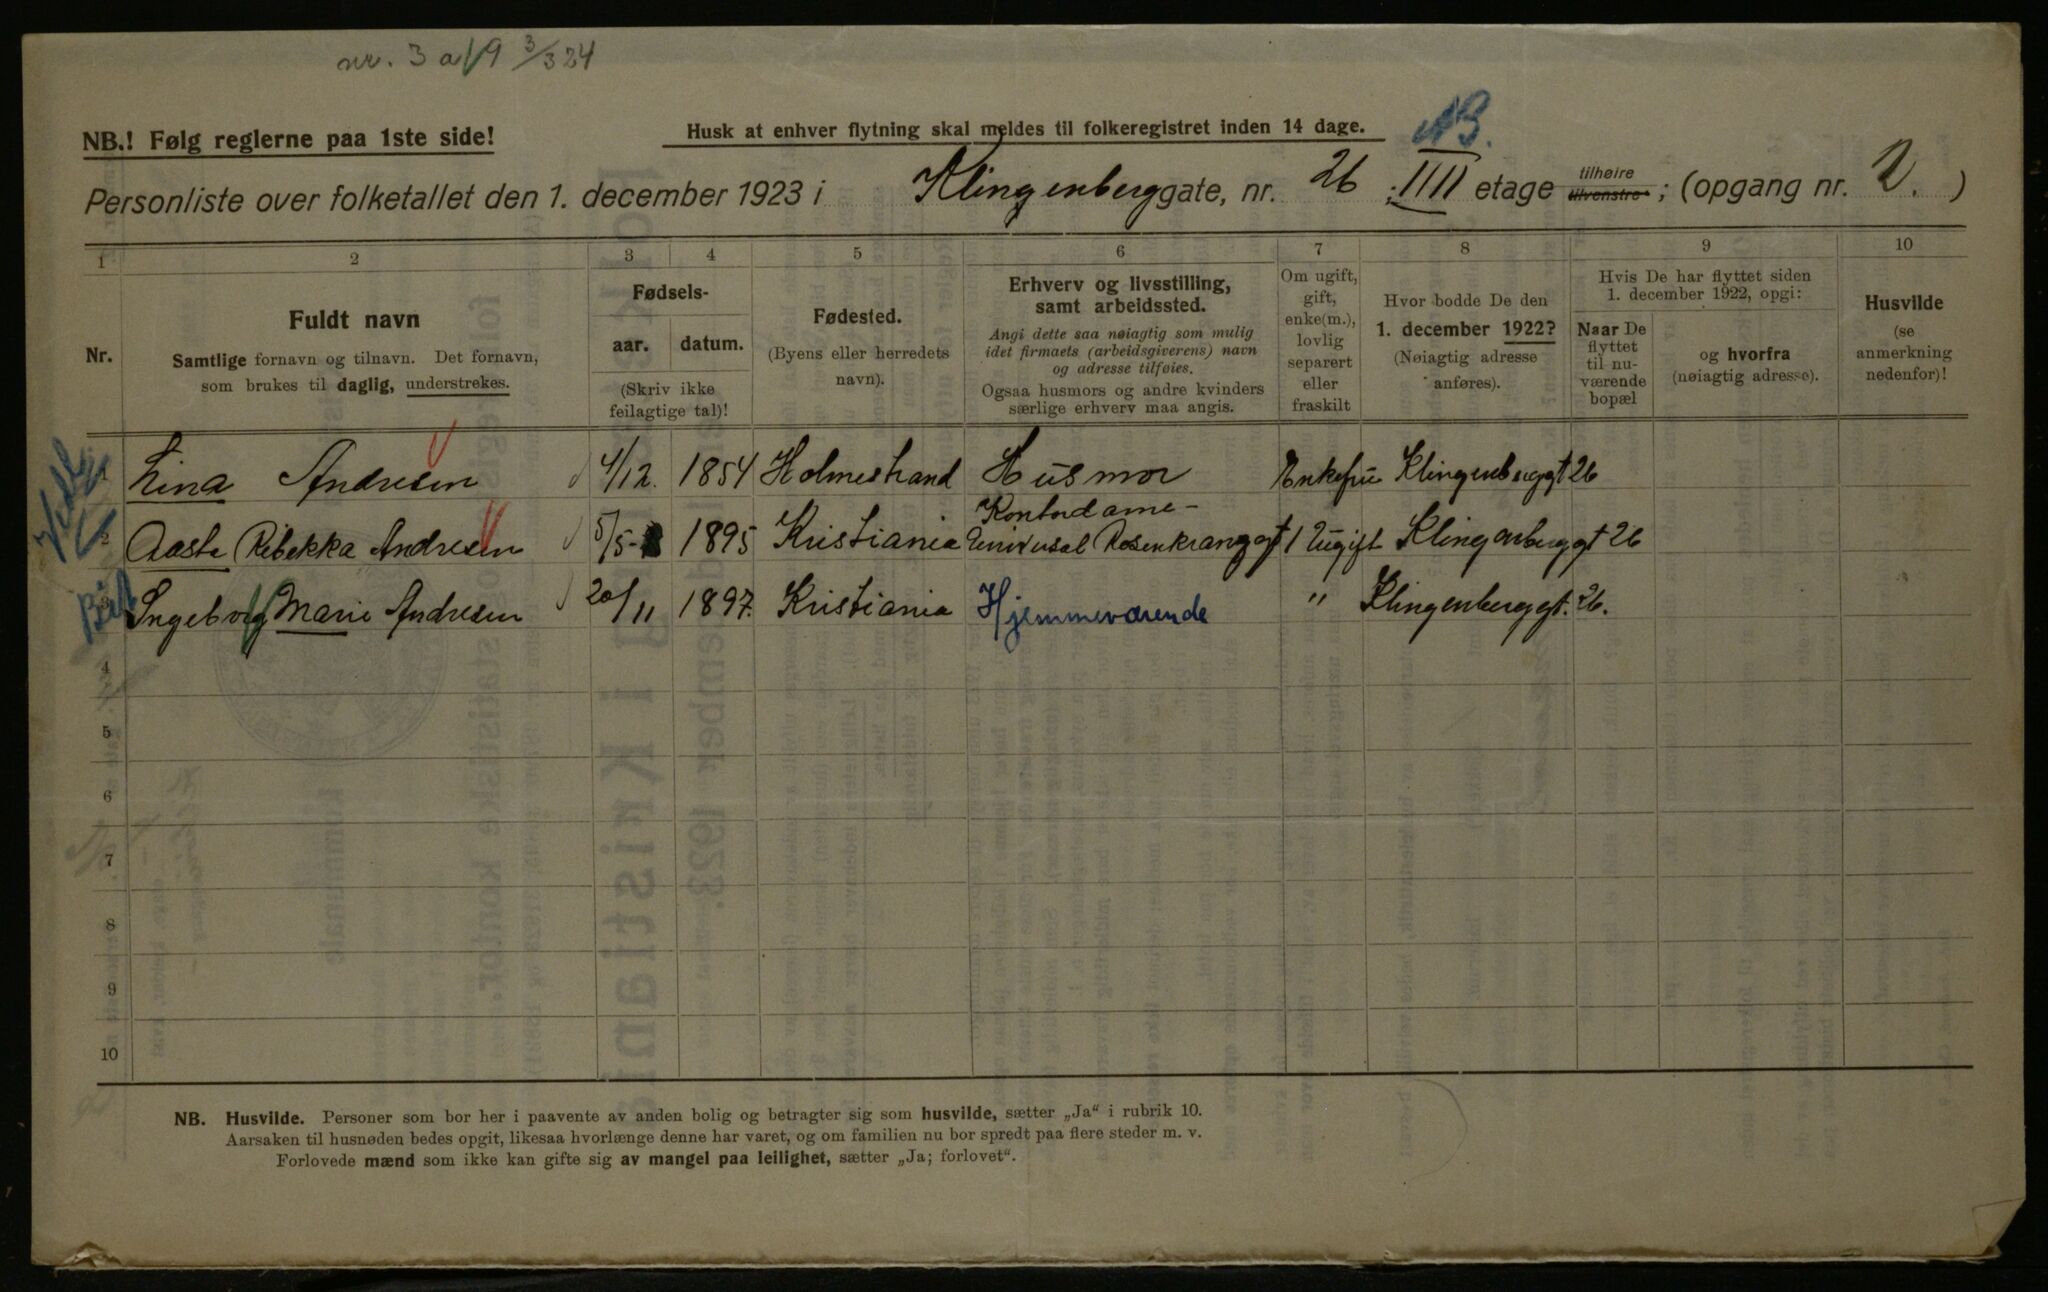 nr. 3 a/9 3/3 24
NB.
NB.! Følg reglerne paa 1ste side!
Husk at enhver flytning skal meldes til folkeregistret inden 14 dage.
Personliste over folketallet den 1. december 1923 i Klingenberggate, nr. 26 ; IIII etage tilhøire tilvenstre ; (opgang nr. 2. )
1 2 3 4 5 6 7 8 9 10
Nr.
Fuldt navn
Samtlige fornavn og tilnavn. Det fornavn,
som brukes til daglig, understrekes.
Fødsels-
aar. datum.
(Skriv ikke
feilagtige tal)!
Fødested.
(Byens eller herredets
navn).
Erhverv og livsstilling,
samt arbeidssted.
Angi dette saa nøiagtig som mulig
idet firmaets (arbeidsgiverens) navn
og adresse tilføies.
Ogsaa husmors og andre kvinders
særlige erhverv maa angis.
Om ugift,
gift,
enke(m.),
lovlig
separert
eller
fraskilt
Hvor bodde De den
1. december 1922?
(Nøiagtig adresse
anføres).
Hvis De har flyttet siden
1. december 1922, opgi:
Naar De
flyttet
til nu-
værende
bopæl
og hvorfra
(nøiagtig adresse).
Husvilde
(se
anmerkning
nedenfor)!
1 Lina Andresen 4/12. 1854 Holmestrand Husmor Enkefru Klingenberggt 26
Kontordame-
2 Aasta Rebekka Andresen 5/5- 1895 Kristiania Universal Rosenkranzgt 1 Ugift Klingenberggt 26
3 Ingeborg Marie Andresen 20/11 1897. Kristiania Hjemmeværende " Klingenberggt. 26.
4
5
6
7
8
9
10
NB. Husvilde. Personer som bor her i paavente av anden bolig og betragter sig som husvilde, sætter „Ja“ i rubrik 10.
Aarsaken til husnøden bedes opgit, likesaa hvorlænge denne har varet, og om familien nu bor spredt paa flere steder m. v.
Forlovede mænd som ikke kan gifte sig av mangel paa leilighet, sætter „Ja; forlovet“.